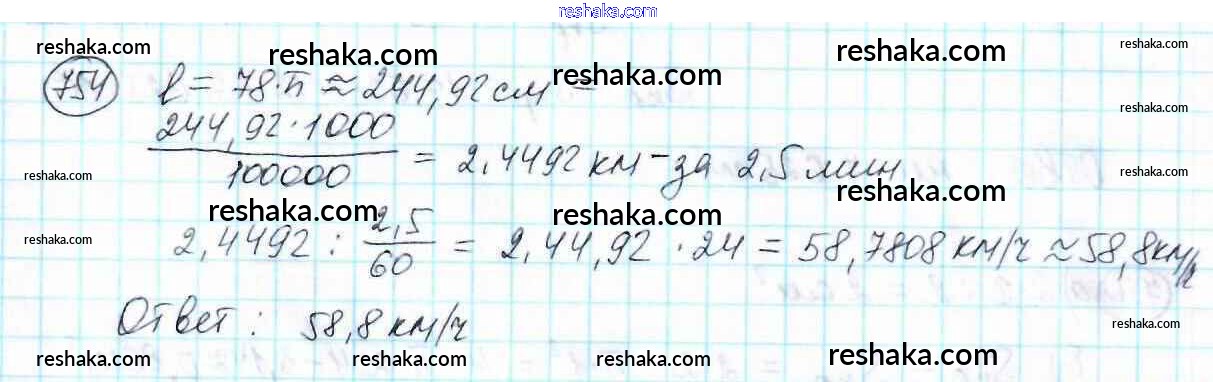 reshaka.com
reshaka.com reshaka.com reshaka.com reshaka.com
754 ℓ = 78·π ≈ 244,92 см =
reshaka.com
244,92·1000
reshaka.com
100000 = 2,4492 км – за 2,5 мин
reshaka.com reshaka.com
reshaka.com reshaka.com reshaka.com
2,5
reshaka.com
2,4492 : 60 = 2,44,92 · 24 = 58,7808 км/ч ≈ 58,8 км/ч
reshaka.com
Ответ : 58,8 км/ч
reshaka.com
reshaka.com reshaka.com reshaka.com reshaka.com